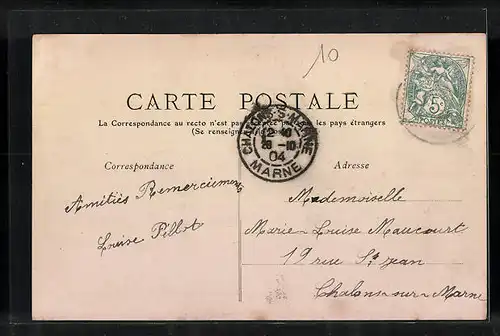 10
CARTE POSTALE
La Correspondance au recto n'est pas les pays étrangers
(Se
CHALONS-S-MARNE
12-40
28-10
04
MARNE
5c
Correspondance
Adresse
Amitiés Remerciements
Louise Pillot
Mademoiselle
Marie-Louise Maucourt
19 rue St Jean
Chalons-sur-Marne